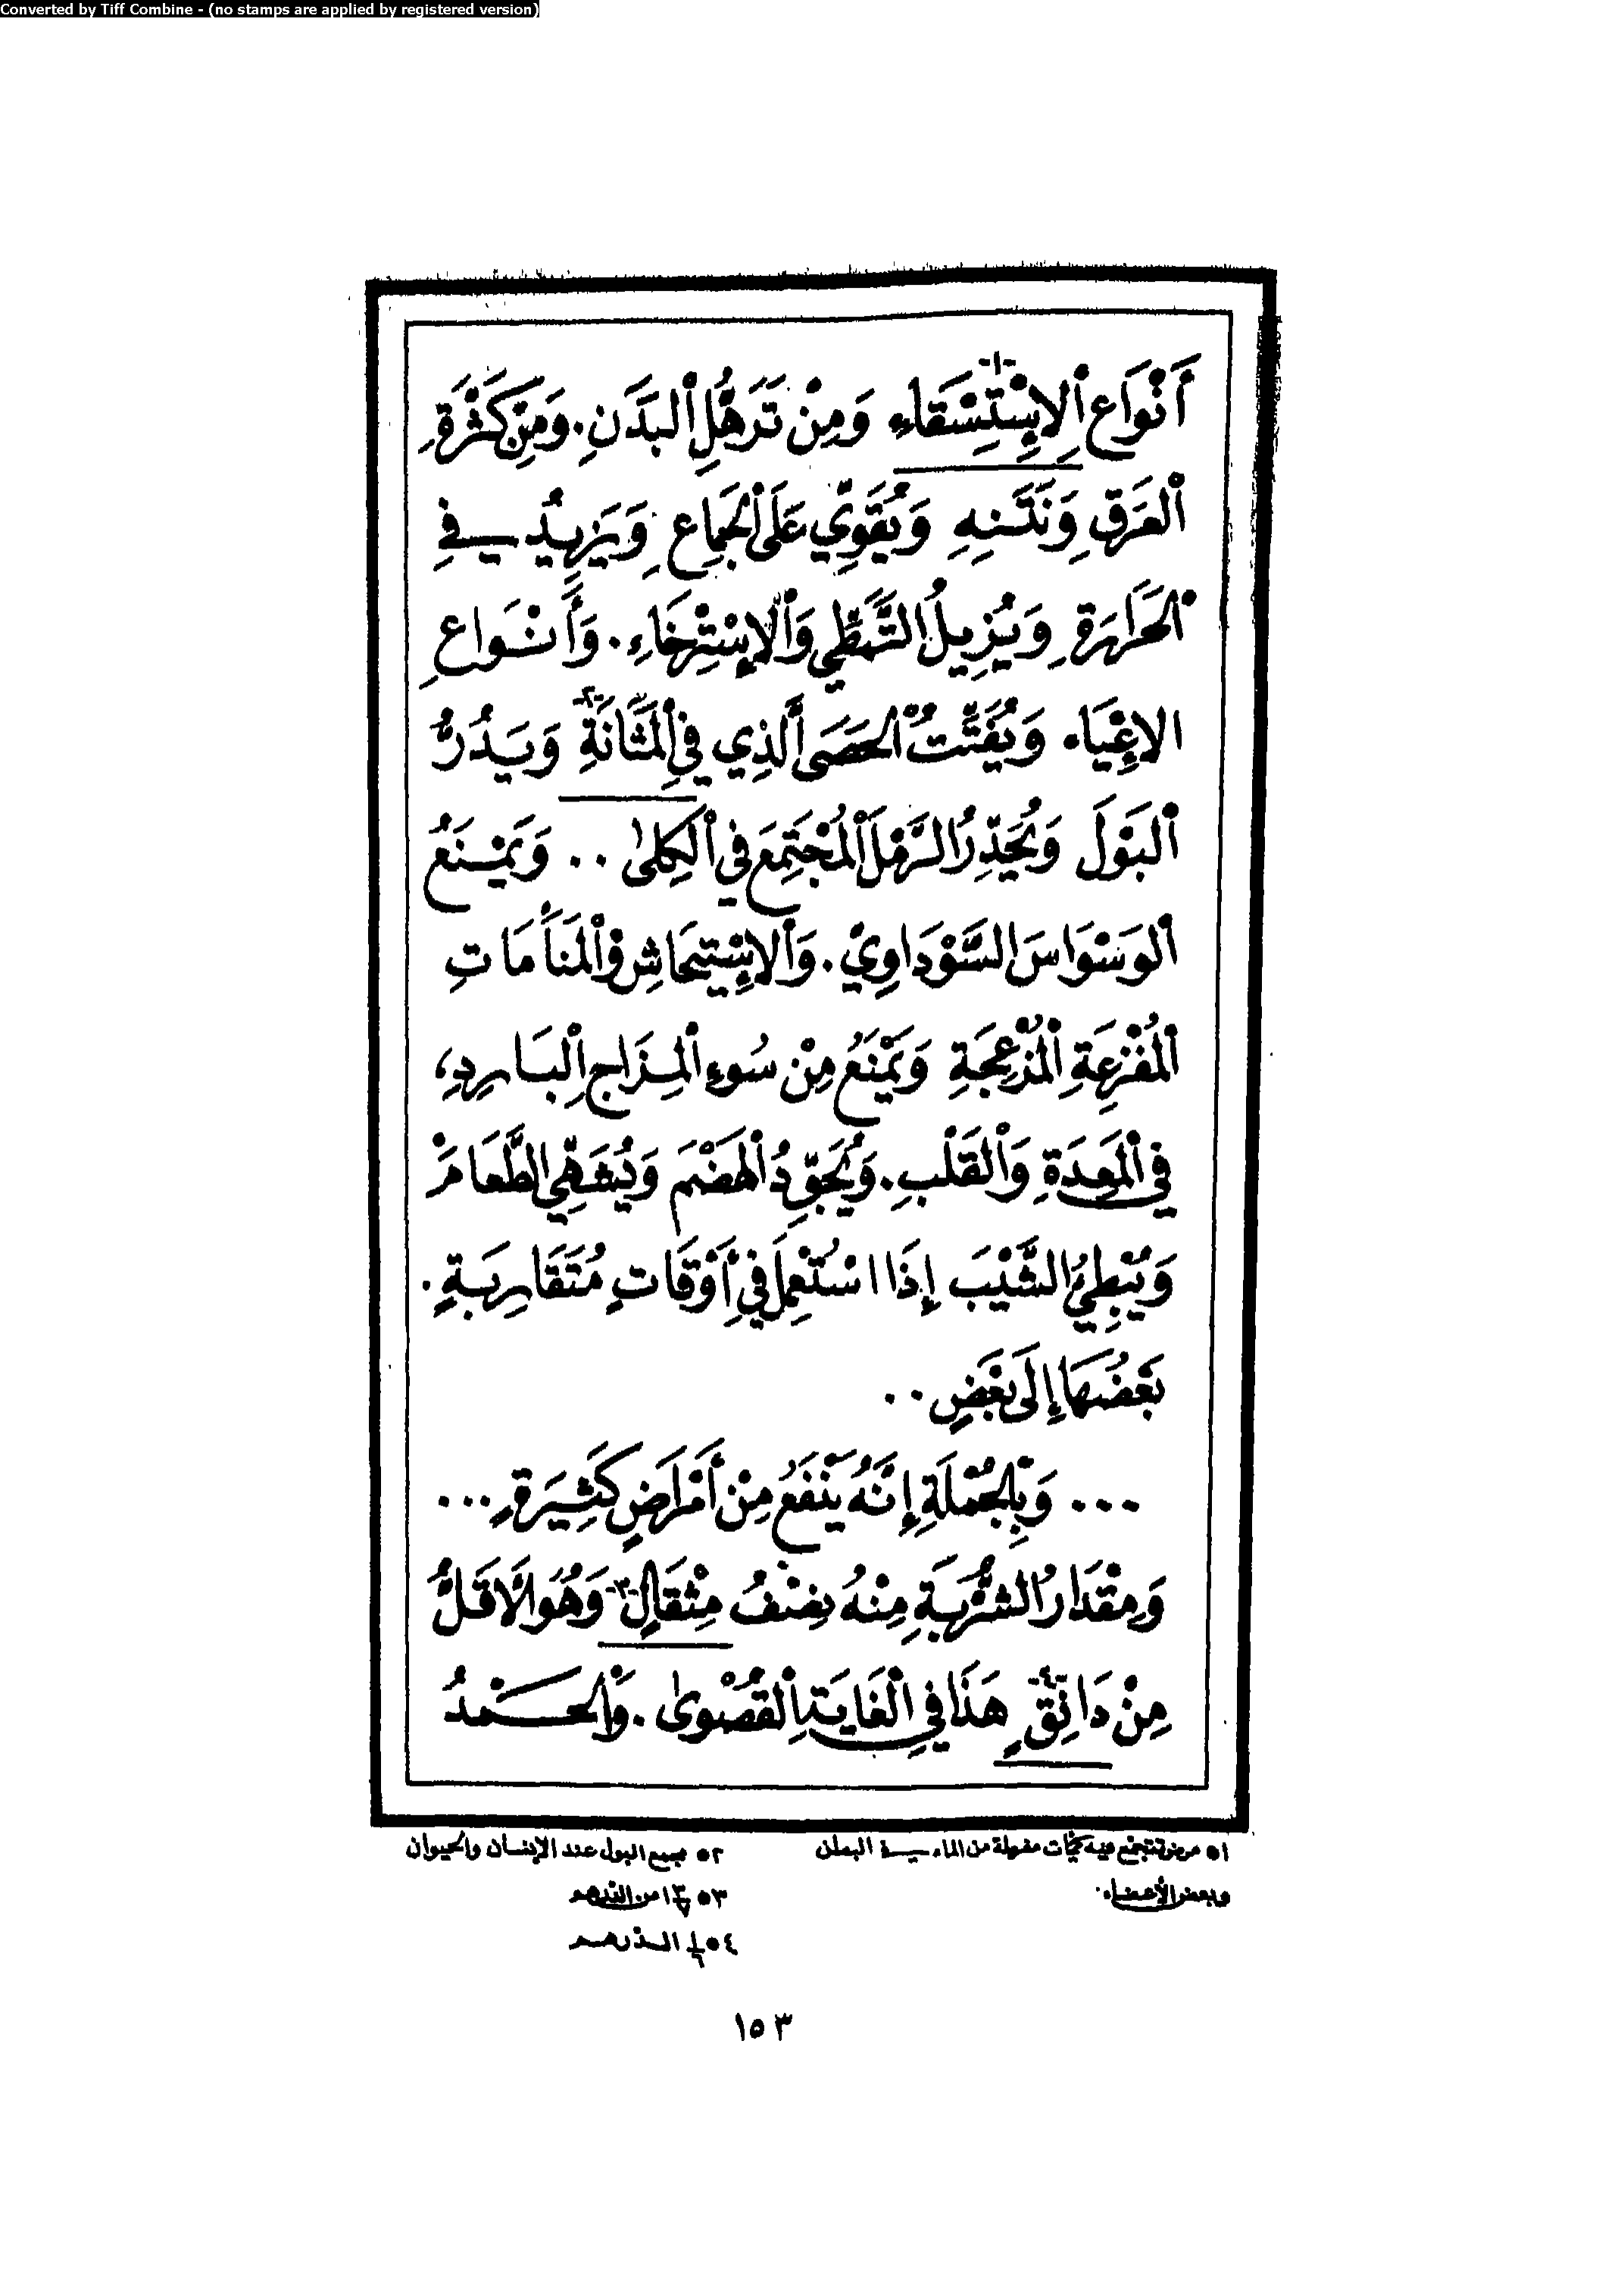 Converted by Tiff Combine - (no stamps are applied by registered version)
أَنْوَاعِ الِاسْتِسْقَاءِ -١- وَمِنْ تَرَهُّلِ الْبَدَنِ. وَمِنْ كَثْرَةِ
الْعَرَقِ وَنَتَنِهِ وَيُقَوِّي عَلَى الْجِمَاعِ وَيَزِيدُ فِي
الْحَرَارَةِ وَيُزِيلُ التَّمَطِّي وَالْإِسْتِرْخَاءِ. وَأَنْوَاعِ
الاِعْيَاء وَيُفَتِّتُ الْحَصَى الَّذِي فِي الْمَثَانَةِ -٢- وَيَدُرُّ
الْبَوْلَ وَيُحَدِّرُ الرَّمْلَ الْمُجْتَمِعَ فِي الْكِلىٰ .. وَيَمْنَعُ
الْوَسْوَاسَ السَّوْدَاوِيَّ. وَالْإِسْتِيحَاشِ وَالْمَنَامَاتِ
الْمُفْزِعَةِ الْمُزْعِجَةِ وَيَمْنَعُ مِنْ سُوءِ الْمِزَاجِ الْبَارِدِ،
فِي الْمَعِدَةِ وَالْقَلْبِ. وَيُجَوِّدُ الْهَضْمَ وَيُشَهِّي الطَّعَامَ
وَيُبْطِئُ الشَّيْبَ إِذَا اسْتُعْمِلَ فِي أَوْقَاتٍ مُتَقَارِبَةٍ.
بَعْضُهَا إِلَى بَعْضٍ ..
... وَبِالْجُمْلَةِ إِنَّهُ يَنْفَعُ مِنْ أَمْرَاضٍ كَثِيرَةٍ ...
وَمِقْدَارُ الشُّرْبَةِ مِنْهُ نِصْفُ مِثْقَالٍ -٣- وَهُوَ الْأَقَلُّ
مِنْ دَانِقٍ -٤- هَذَا فِي الْغَايَةِ الْقُصْوىٰ. وَالْحَمْدُ
٥١ مرض تتجمع فيه كميات مفصلة من الماء في البطن
وبعض الأعضاء.
٥٢ مجمع البول عند الإنسان والحيوان
٥٣ ١ ٣/٧ من الدرهم
٥٤ ١/٦ الدرهم
١٥٣